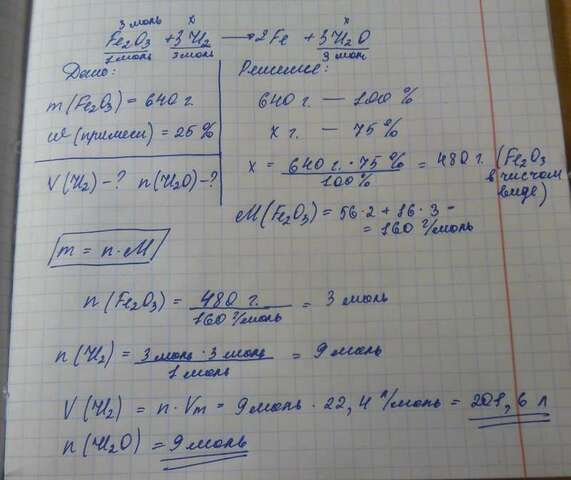 3 моль x x
Fe₂O₃ + 3H₂ → 2Fe + 3H₂O
1 моль 3 моль 3 моль
Дано:
m(Fe₂O₃) = 640 г.
ω(примеси) = 25 %
V(H₂) - ? n(H₂O) - ?
Решение:
640 г. — 100 %
x г. — 75 %
x = 640 г. · 75 % / 100 % = 480 г. (Fe₂O₃ в чистом виде)
M(Fe₂O₃) = 56·2 + 16·3 =
= 160 г/моль
m = n·M
n(Fe₂O₃) = 480 г. / 160 г/моль = 3 моль
n(H₂) = 3 моль · 3 моль / 1 моль = 9 моль
V(H₂) = n·Vm = 9 моль · 22,4 л/моль = 201,6 л
n(H₂O) = 9 моль